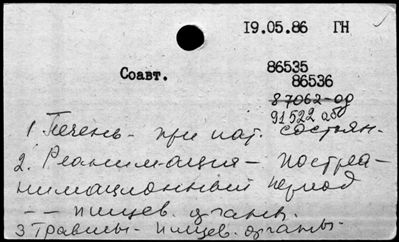 19.05.86 ГН
Соавт.
86535
86536
87062-од
91522 об
1 Печень - при пат. состоян.
2. Реанимация - постреа-
нимационный период
-- пищев. органы.
3 Травмы - пищев. органы